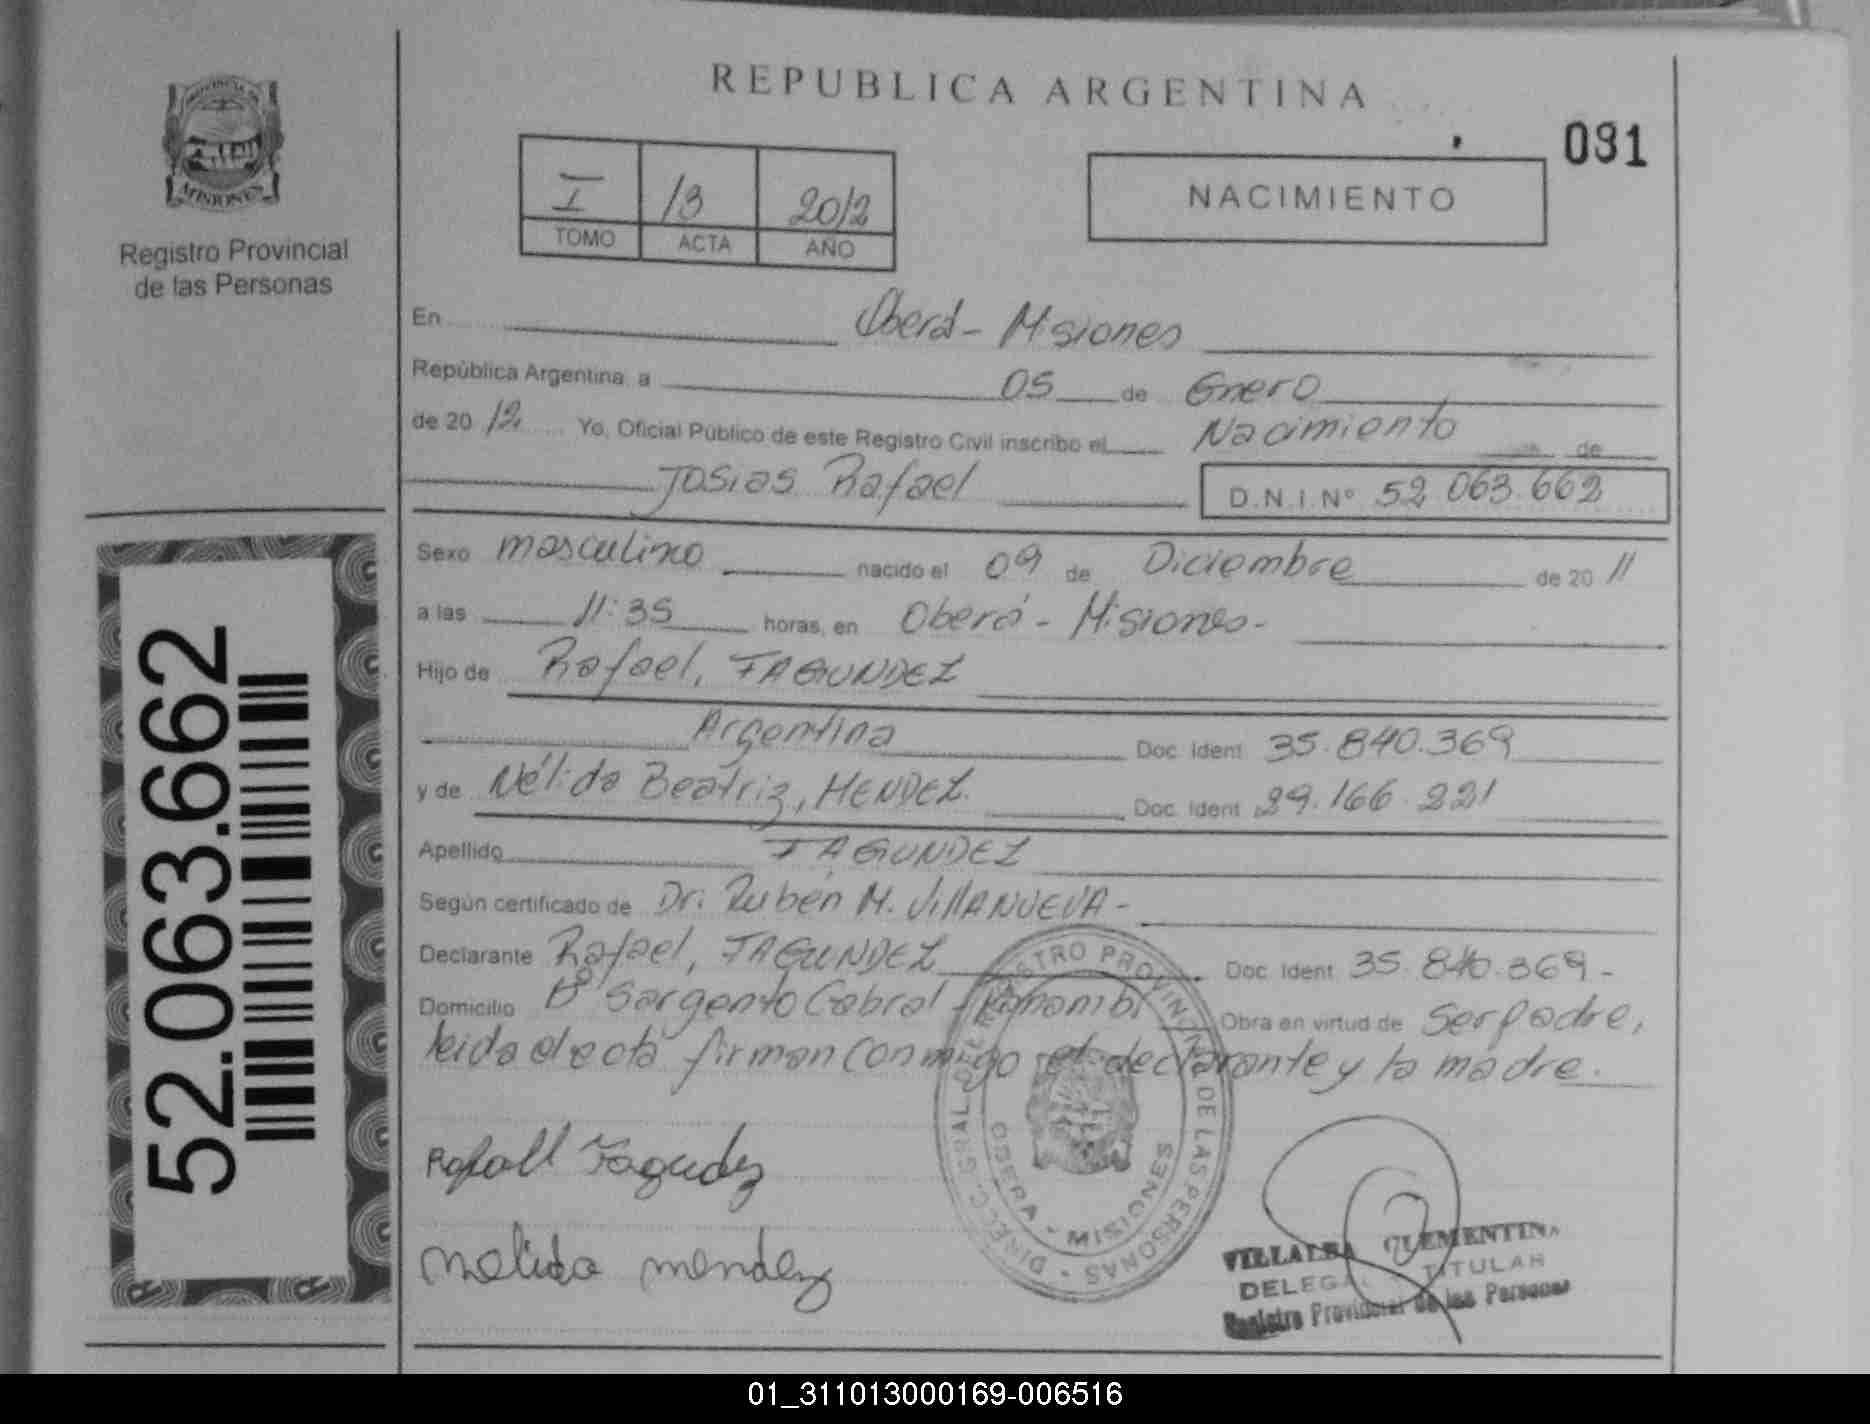 REPUBLICA ARGENTINA
031
PROVINCIA DE
MISIONES
Registro Provincial
de las Personas
I 13 2012
TOMO ACTA AÑO
NACIMIENTO
En Oberá - Misiones
República Argentina, a 05 de Enero
de 2012 Yo, Oficial Público de este Registro Civil inscribo el Nacimiento de
Josias Rafael D.N.I.Nº 52 063.662
Sexo masculino nacido el 09 de Diciembre de 2011
a las 11:35 horas, en Oberá - Misiones-
Hijo de Rafael, FAGUNDEZ
Argentina Doc. Ident 35.840.369
y de Nélida Beatriz, MENDEZ. Doc. Ident 29.166.221
Apellido FAGUNDEZ
Según certificado de Dr. Rubén M. VILLANUEVA -
Declarante Rafael, FAGUNDEZ Doc. Ident. 35.840.369-
Domicilio Bº Sargento Cabral - Panambí Obra en virtud de Ser padre,
leida el acta firman conmigo el declarante y la madre.
52.063.662
Nelida mendez
DIRECC. GRAL. DEL REGISTRO PROVINCIAL DE LAS PERSONAS
OBERA - MISIONES
VILLALBA CLEMENTINA
TITULAR
Registro Provincial de las Personas
01_311013000169-006516